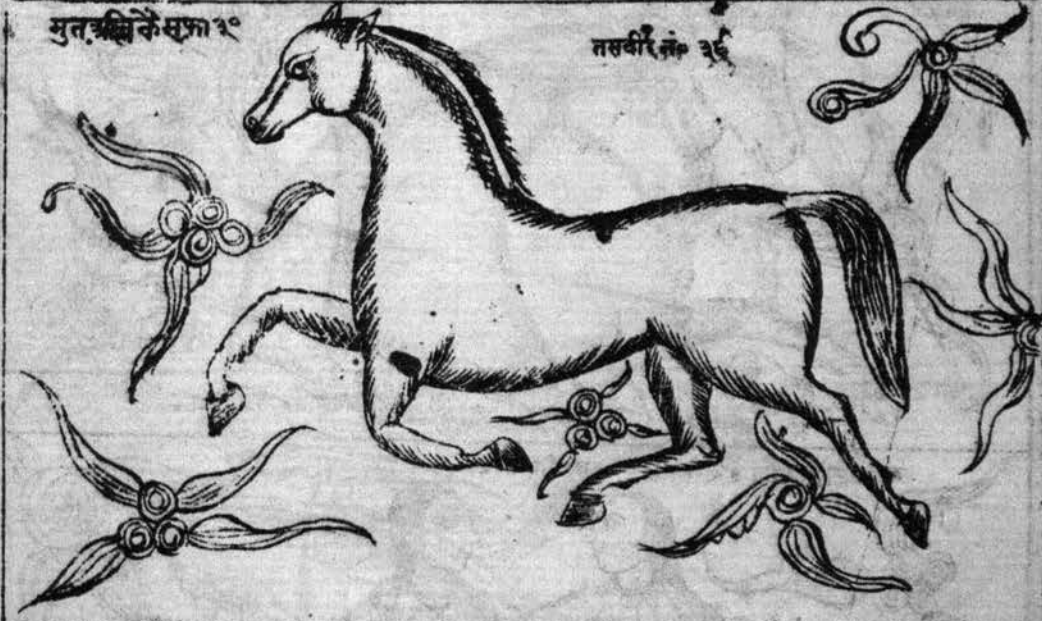 मुतअल्लिकै सफा ३०
तसवीर नं० ३६